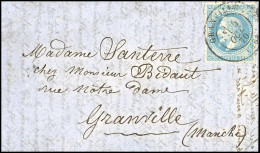 Madame Santerre
chez Monsieur Bédaut
rue Notre Dame
Granville
(Manche)